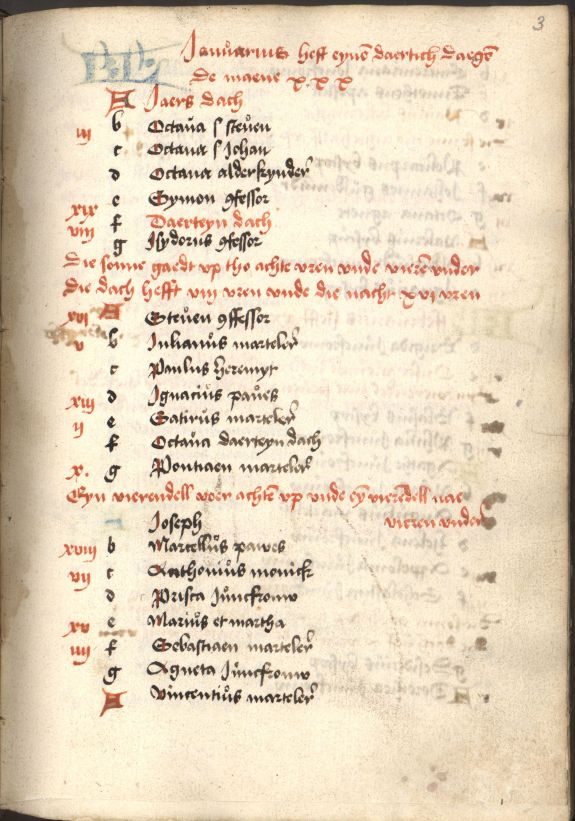 3
KL Januarius heft eynen daertich daegen
De maene x x x
A Jaers dach
iij b Octaua s steuen
c Octaua s Johan
d Octaua alderkynder
e Symon 9fessor
xix f Daerteyn dach
viij g Jsydorus 9fessor
Die sonne gaedt vp tho achte vren vnde vieren vnder
Die dach hefft viij vren vnde die nacht xvi vren
xvi A Steuen 9ffessor
v b Iulianus marteler
c Paulus heremyt
xiij d Ignacius paues
ij e Satirus marteler
f Octaua daerteyn dach
x. g Pontiaen marteler
Eyn vierendell voer achten vp vnde ey vierendell nae
vieren vnder
Joseph
xviij b Marcellus pawes
vij c Anthonius monick
d Prisca Juncfrouw
xv e Marius et martha
iiij f Sebastiaen marteler
g Agneta Juncfrouw
A Vincentius marteler